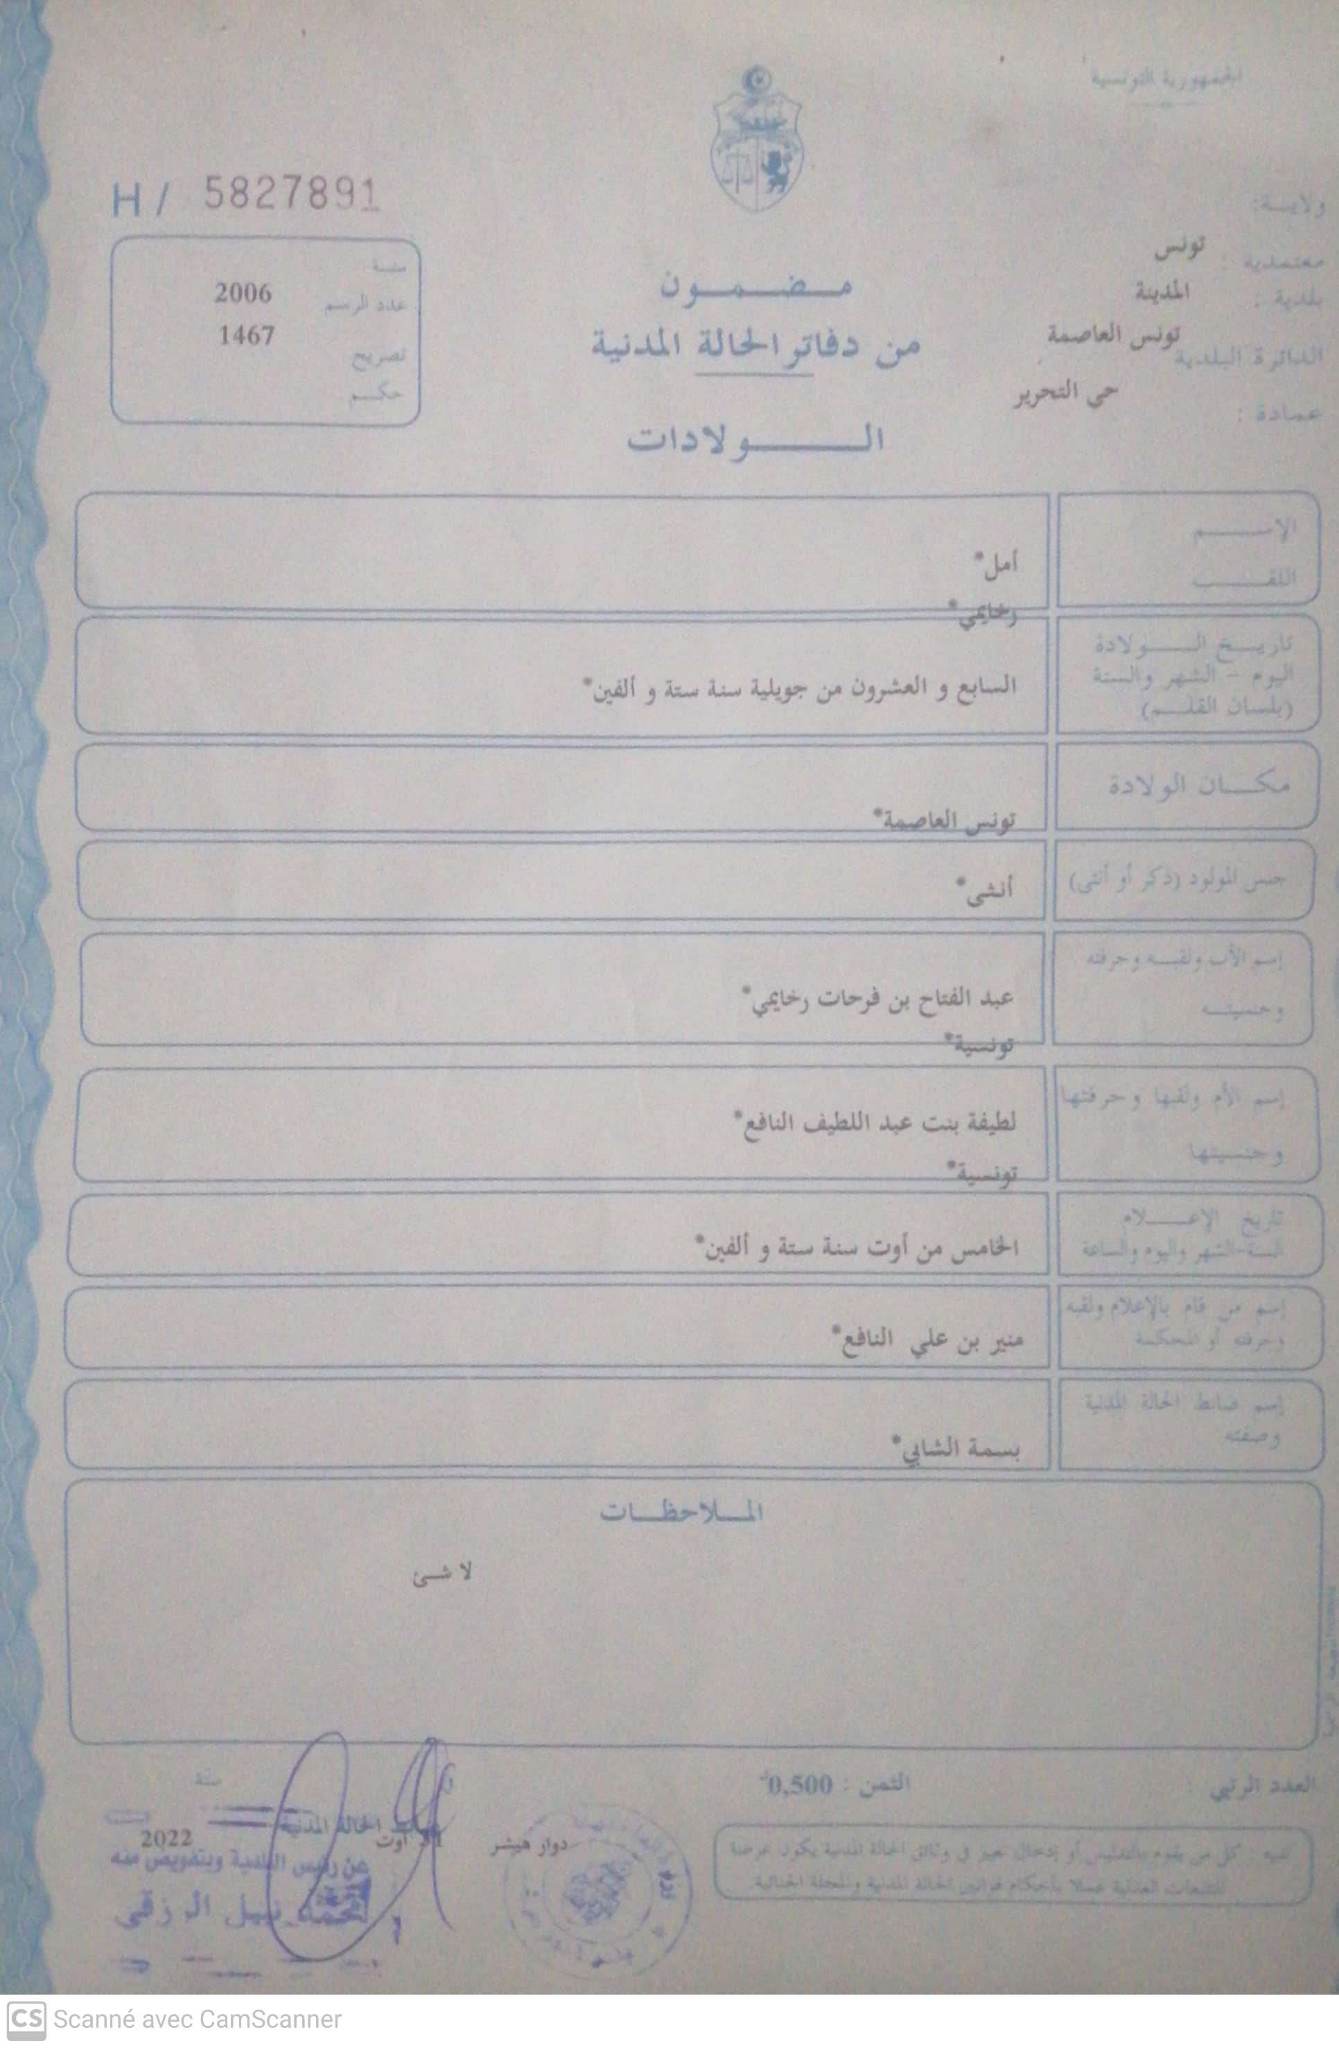 الجمهورية التونسية
H / 5827891
ولايـــة:
تونس
معتمدية :
المدينة
بلدية :
تونس العاصمة
الدائرة البلدية
حي التحرير
عمادة :
سنة
2006
عدد الرسم
1467
تصريح
حكــم
مــضــمــون
من دفاتر الحالة المدنية
الـــــولادات
الإســــــم
أمل*
اللقــــــب
رخايمي*
تاريــخ الـــــولادة
اليوم - الشهر والسنة
(بلسان القلــم)
السابع و العشرون من جويلية سنة ستة و ألفين*
مكـــان الولادة
تونس العاصمة*
جنس المولود (ذكر أو أنثى)
أنثى*
إسم الأب ولقبــه وحرفته
وجنسيتــه
عبد الفتاح بن فرحات رخايمي*
تونسية*
إسم الأم ولقبها وحرفتها
وجنسيتها
لطيفة بنت عبد اللطيف النافع*
تونسية*
تاريخ الإعــــلام
السنة-الشهر واليوم والساعة
الخامس من أوت سنة ستة و ألفين*
إسم من قام بالإعلام ولقبه
وحرفته أو المحكمة
منير بن علي النافع*
إسم ضابط الحالة المدنية
وصفته
بسمة الشابي*
المــلاحظــات
لا شئ
العدد الرتبي :
الثمن : 0,500
سنة
دوار هيشر
أوت
2022
الحالة المدنية
عن رئيس البلدية وبتفويض منه
نبيل الرزقي
تنبيه : كل من يقوم بالتدليس أو إدخال تغيير في وثائق الحالة المدنية يكون عرضة
للتتبعات العدلية عملا بأحكام قوانين الحالة المدنية والمجلة الجنائية
CS Scanné avec CamScanner